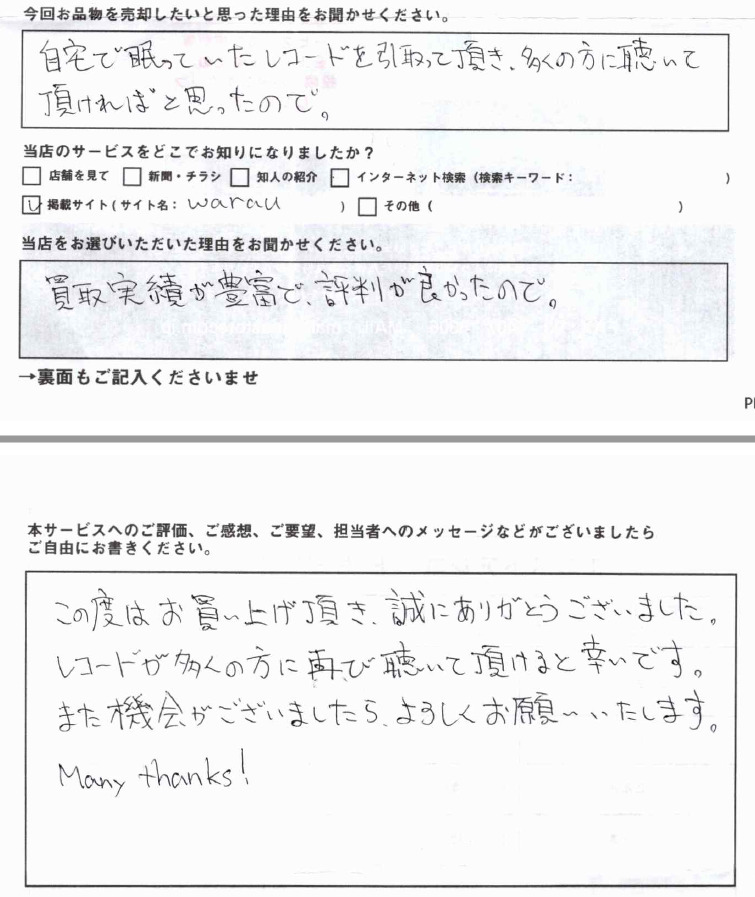 今回お品物を売却したいと思った理由をお聞かせください。
自宅で眠っていたレコードを引取って頂き、多くの方に聴いて
頂ければと思ったので。
当店のサービスをどこでお知りになりましたか？
□ 店舗を見て □ 新聞・チラシ □ 知人の紹介 □ インターネット検索（検索キーワード： ）
☑ 掲載サイト（サイト名： warau ） □ その他（ ）
当店をお選びいただいた理由をお聞かせください。
買取実績が豊富で評判が良かったので。
→裏面もご記入くださいませ
本サービスへのご評価、ご感想、ご要望、担当者へのメッセージなどがございましたら
ご自由にお書きください。
この度はお買い上げ頂き、誠にありがとうございました。
レコードが多くの方に再び聴いて頂けると幸いです。
また機会がございましたら、よろしくお願いいたします。
Many thanks!